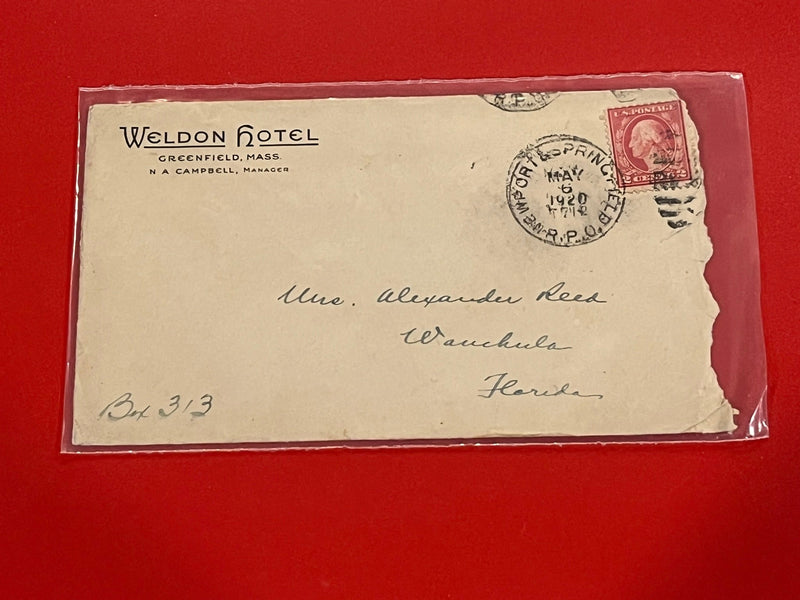 WELDON HOTEL
GREENFIELD, MASS.
N A CAMPBELL, MANAGER
R.P.O
U.S. POSTAGE
2 CENTS 2
NEWPORT & SPRINGFIELD
MAY
6
1920
R.P.O.
Mrs. Alexander Reed
Wauchula
Florida
Box 313